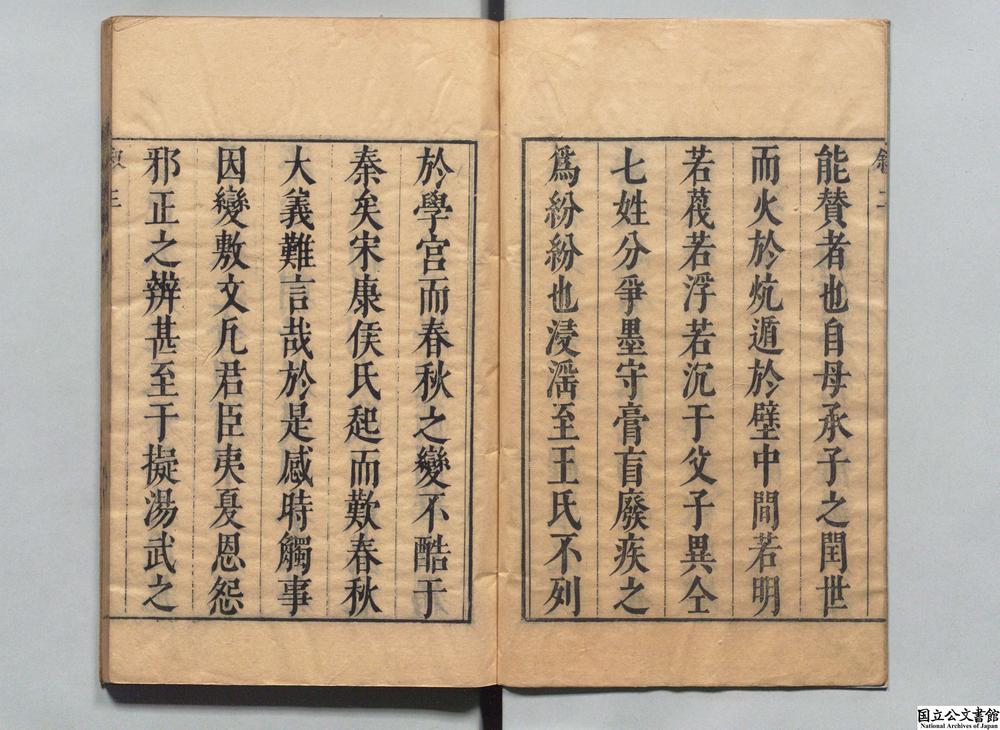 能賛者也自母承子之閏世
而火於炕遁於壁中間若明
若蔑若浮若沉于父子異仝
七姓分爭墨守膏盲廢疾之
爲紛紛也浸滛至王氏不列
於學宫而春秋之變不酷于
秦矣宋康侯氏起而歎春秋
大義難言哉於是感時觸事
因變敷文凡君臣夷夏恩怨
邪正之辨甚至于擬湯武之
国立公文書館
National Archives of Japan